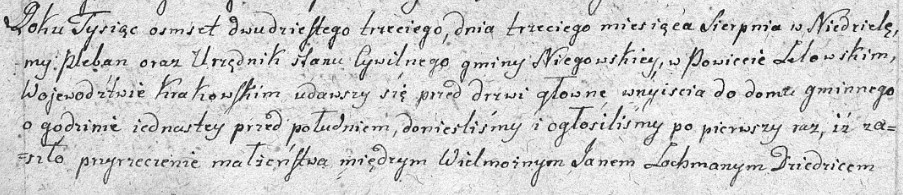 Roku Tysiąc osmset dwudziestego trzeciego, dnia trzeciego miesiąca Sierpnia w Niedzielę,
my Pleban oraz Urzędnik stanu Cywilnego gminy Niegowskiey, w Powiecie Lelowskim,
Wojewodztwie Krakowskim udawszy się przed drzwi głowne wnyiscia do domu gminnego
o godzinie iednastey przed południem, doniesliśmy i ogłosiliśmy po pierwszy raz, iż za=
=szło przyrzeczenie małieństwa między Wielmożnym Janem Lochmanym Dziedzicem